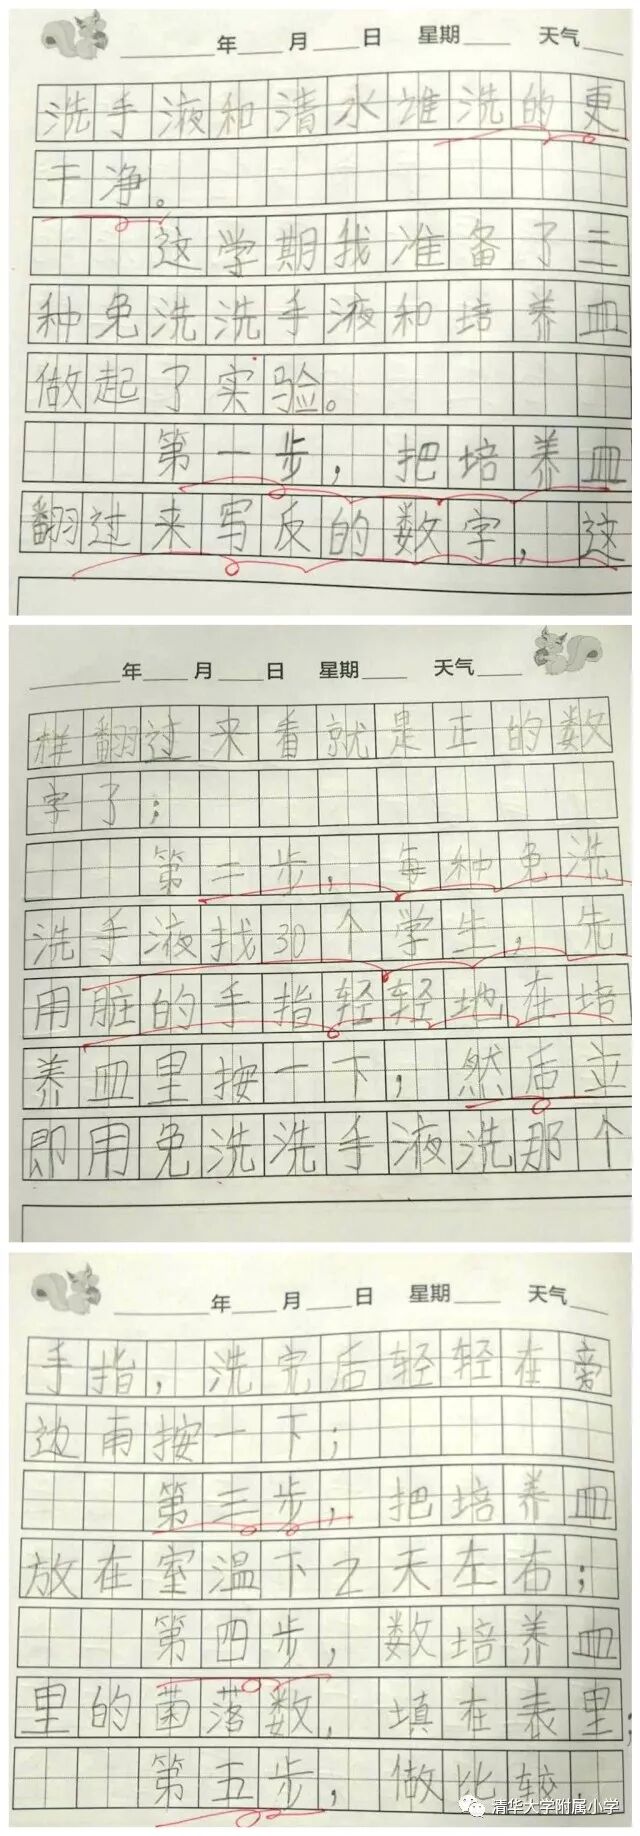 年 月 日 星期 天气
洗手液和清水谁洗的更
干净。
这学期我准备了三
种免洗洗手液和培养皿
做起了实验。
第一步，把培养皿
翻过来写反的数字，这
年 月 日 星期 天气
样翻过来看就是正的数
字了；
第二步，每种免洗
洗手液找30个学生，先
用脏的手指轻轻地在培
养皿里按一下，然后立
即用免洗洗手液洗那个
年 月 日 星期 天气
手指，洗完后轻轻在旁
边再按一下；
第三步，把培养皿
放在室温下2天左右；
第四步，数培养皿
里的菌落数，填在表里；
第五步，做比较
清华大学附属小学